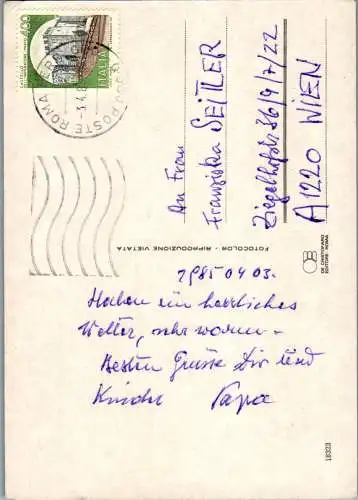 400
ITALIA
POSTE ROMA
3.4.8
An Frau
Franziska SEITLER
Ziegelhofstr 36/9/7/22
A1220 WIEN
FOTOCOLOR - RIPRODUZIONE VIETATA
DE CHRISTOFARO
EDITORE - ROMA
1985 04 03.
Haben ein herrliches
Wetter, sehr warm -
Besten Grüsse Dir und
Kinder Papa
18323